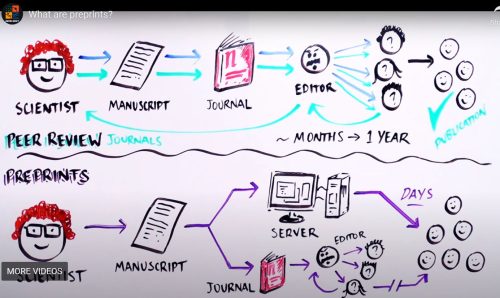 What are preprints?
SCIENTIST
MANUSCRIPT
JOURNAL
EDITOR
PEER REVIEW JOURNALS
~ MONTHS → 1 YEAR
PUBLICATION
PREPRINTS
SCIENTIST
MANUSCRIPT
SERVER
JOURNAL
EDITOR
DAYS
MORE VIDEOS